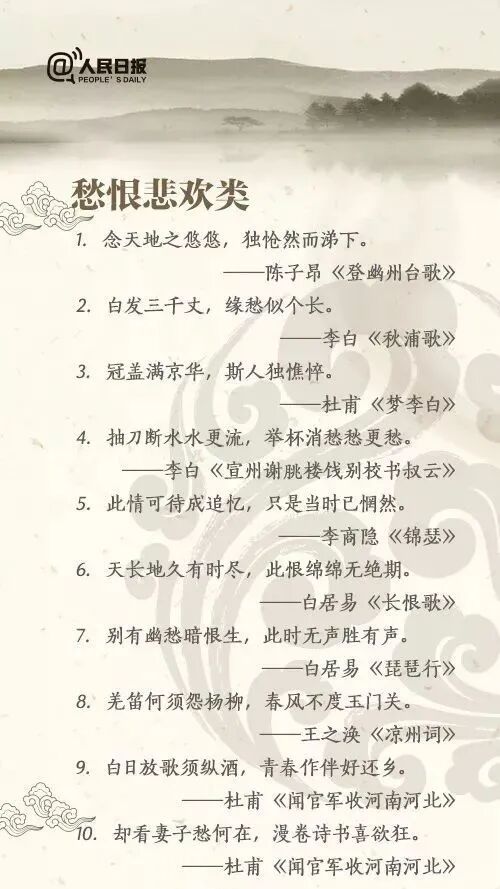 @人民日报
PEOPLE'S DAILY
愁恨悲欢类
1. 念天地之悠悠，独怆然而涕下。
——陈子昂《登幽州台歌》
2. 白发三千丈，缘愁似个长。
——李白《秋浦歌》
3. 冠盖满京华，斯人独憔悴。
——杜甫《梦李白》
4. 抽刀断水水更流，举杯消愁愁更愁。
——李白《宣州谢朓楼饯别校书叔云》
5. 此情可待成追忆，只是当时已惘然。
——李商隐《锦瑟》
6. 天长地久有时尽，此恨绵绵无绝期。
——白居易《长恨歌》
7. 别有幽愁暗恨生，此时无声胜有声。
——白居易《琵琶行》
8. 羌笛何须怨杨柳，春风不度玉门关。
——王之涣《凉州词》
9. 白日放歌须纵酒，青春作伴好还乡。
——杜甫《闻官军收河南河北》
10. 却看妻子愁何在，漫卷诗书喜欲狂。
——杜甫《闻官军收河南河北》